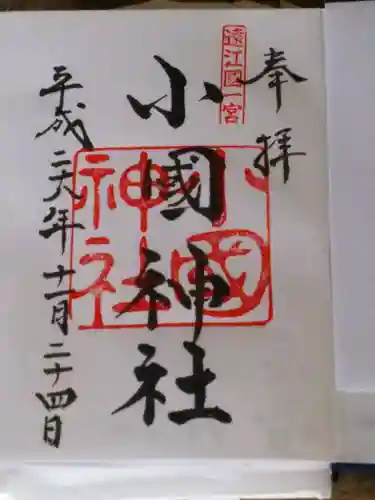 奉拝
遠江國一宮
小國神社
小國神社
平成二六年十一月二十四日